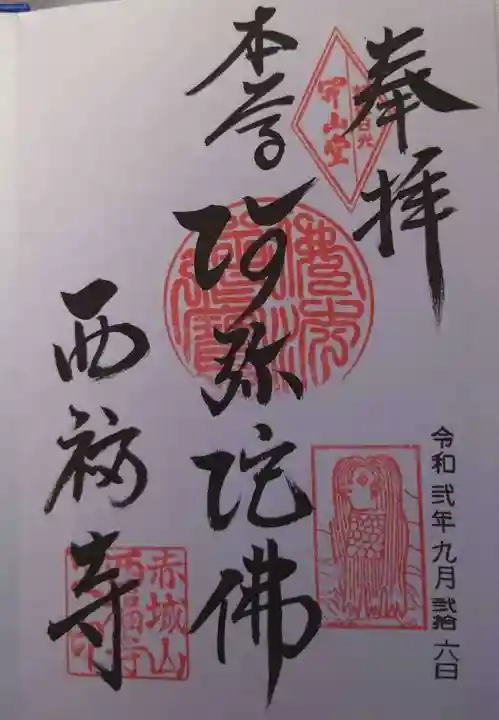 奉拝
開山堂
本尊
阿弥陀佛
佛法僧寶
西福寺
赤城山
西福寺
令和弐年九月弐拾六日